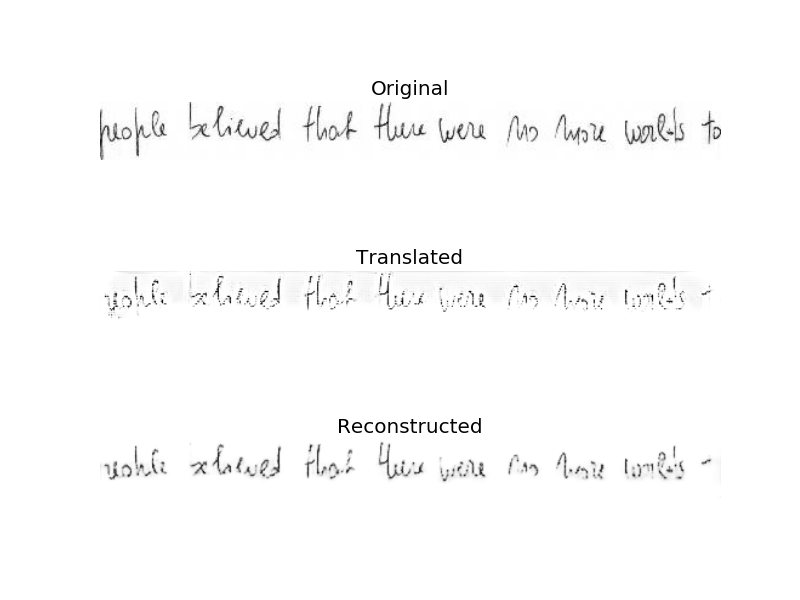 Original
people believed that there were no more worlds to
Translated
believed that there were no more worlds
Reconstructed
that there were no more worlds